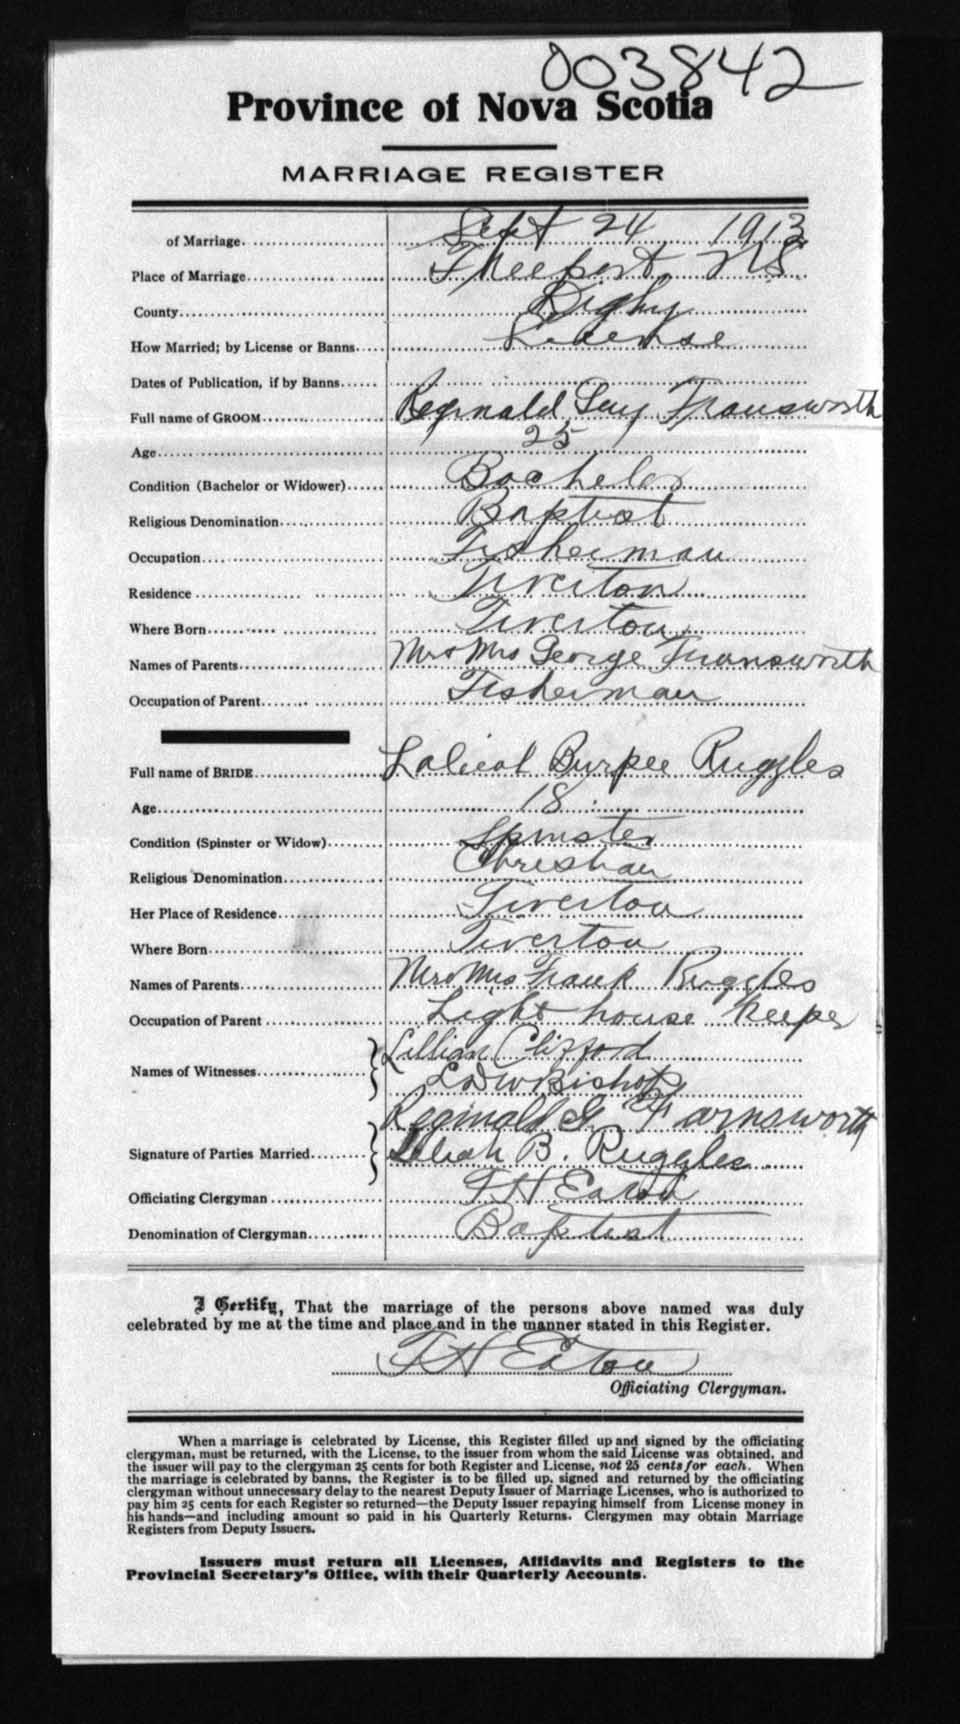 003842
Province of Nova Scotia
MARRIAGE REGISTER
of Marriage Sept 24 1913
Place of Marriage Freeport, NS
County Digby
How Married; by License or Banns License
Dates of Publication, if by Banns
Full name of GROOM Reginald Guy Fransworth
Age 25
Condition (Bachelor or Widower) Bachelor
Religious Denomination Baptist
Occupation Fisherman
Residence Tiverton
Where Born Tiverton
Names of Parents Mr & Mrs George Fransworth
Occupation of Parent Fisherman
Full name of BRIDE Burpee Ruggles
Age 18
Condition (Spinster or Widow) Spinster
Religious Denomination Christian
Her Place of Residence Tiverton
Where Born Tiverton
Names of Parents Mr & Mrs Frank Ruggles
Occupation of Parent Light house Keeper
Names of Witnesses Lillian Clifford
Bishop
Reginald G. Farnsworth
Signature of Parties Married B. Ruggles
Officiating Clergyman F H Eaton
Denomination of Clergyman Baptist
I Certify, That the marriage of the persons above named was duly
celebrated by me at the time and place and in the manner stated in this Register.
F H Eaton
Officiating Clergyman.
When a marriage is celebrated by License, this Register filled up and signed by the officiating
clergyman, must be returned, with the License, to the issuer from whom the said License was obtained, and
the issuer will pay to the clergyman 25 cents for both Register and License, not 25 cents for each. When
the marriage is celebrated by banns, the Register is to be filled up, signed and returned by the officiating
clergyman without unnecessary delay to the nearest Deputy Issuer of Marriage Licenses, who is authorized to
pay him 25 cents for each Register so returned—the Deputy Issuer repaying himself from License money in
his hands—and including amount so paid in his Quarterly Returns. Clergymen may obtain Marriage
Registers from Deputy Issuers.
Issuers must return all Licenses, Affidavits and Registers to the
Provincial Secretary's Office, with their Quarterly Accounts.